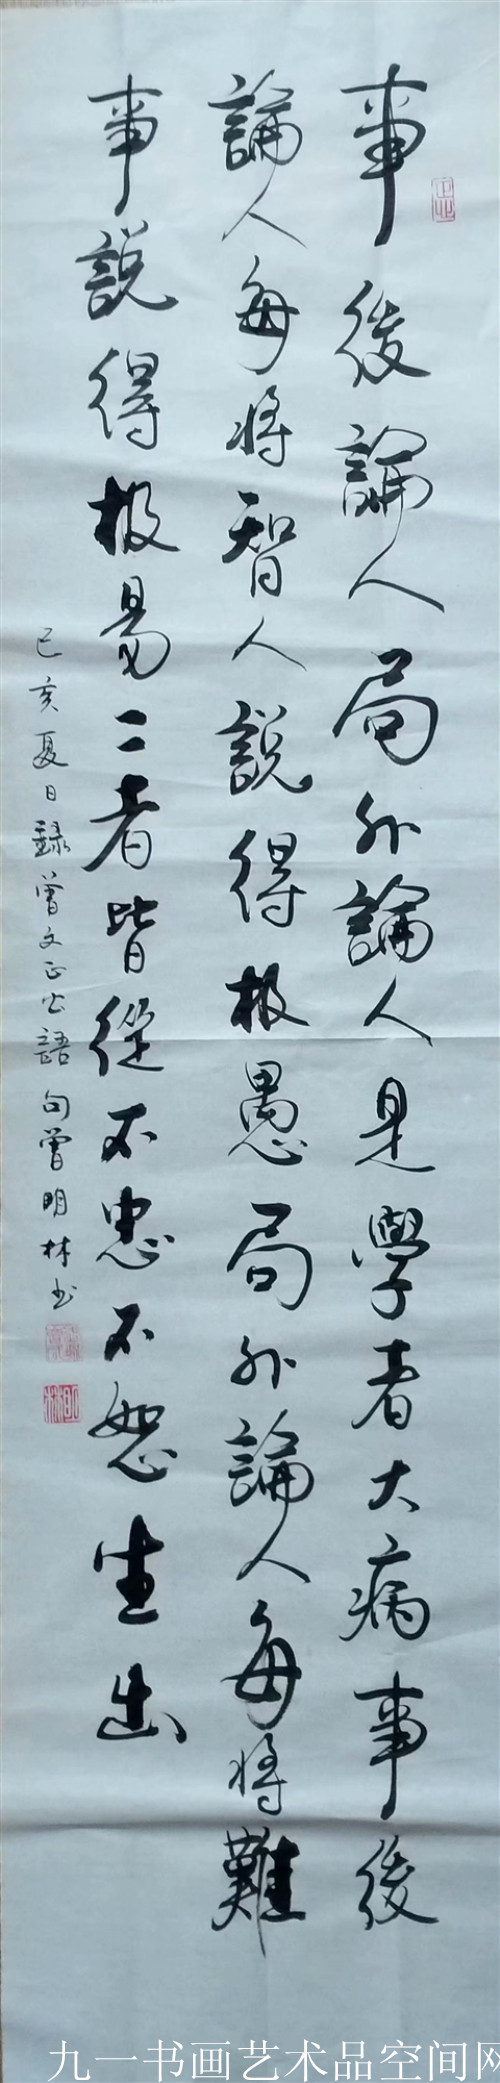 事後論人局外論人是學者大病事後
論人每將智人說得極愚局外論人每將難
事說得极易二者皆從不忠不恕生出
己亥夏日録曾文正公語句曾明林书
明林
九一书画艺术品空间网